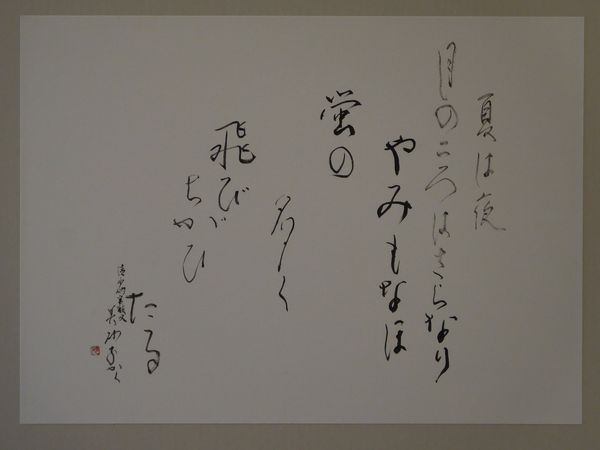 夏は夜
月のころはさらなり
やみもなほ
蛍の
多く
飛び
ちがひ
たる